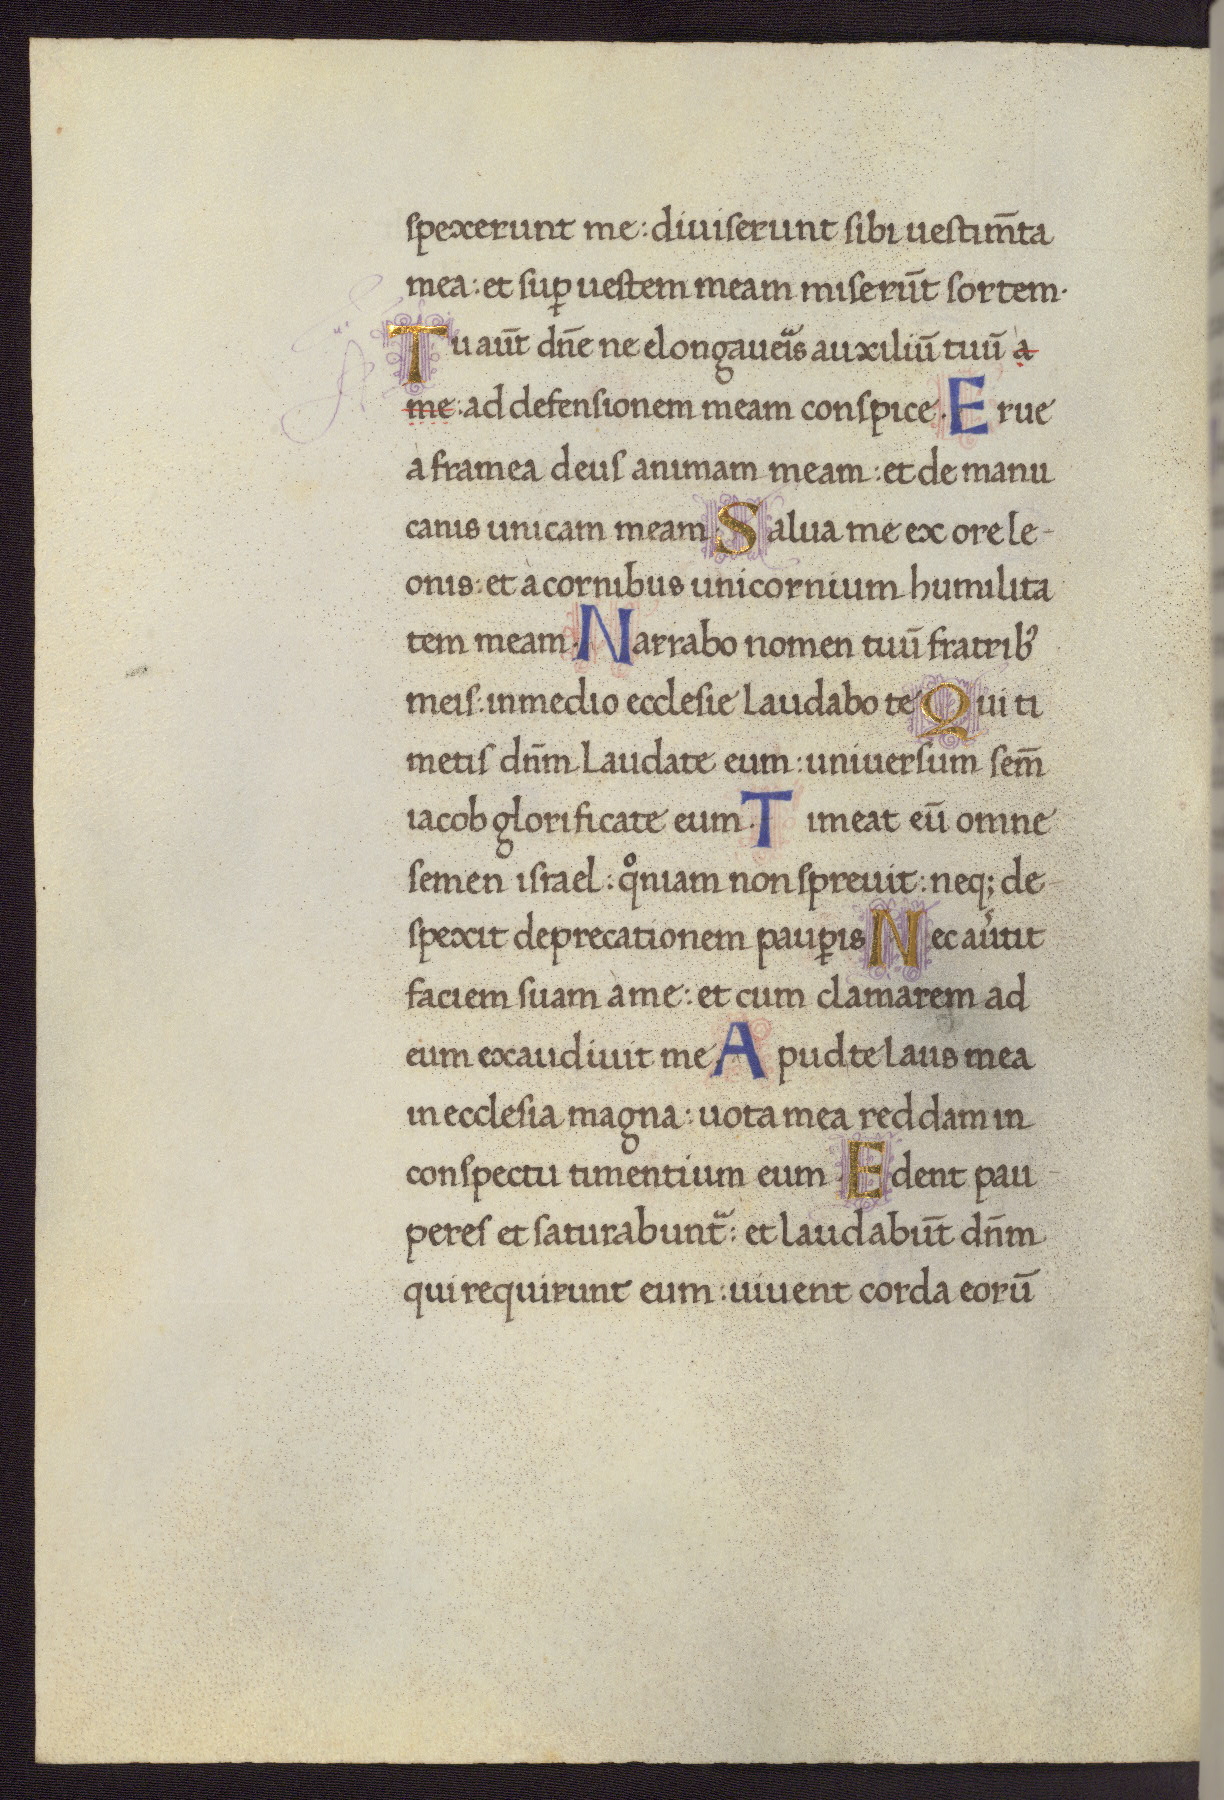 spexerunt me: diuiserunt sibi uestim̄ta
mea: et suꝑ uestem meam miserūt sortem·
Tu aūt dn̄e ne elongaueris auxiliū tuū a
me: ad defensionem meam conspice. Erue
a framea deus animam meam: et de manu
canis unicam meam Salua me ex ore le-
onis: et à cornibus unicornium humilita
tem meam. Narrabo nomen tuū fratrib᾽
meis: in medio ecclesie laudabo te Qui ti
metis dn̄m laudate eum: uniuersum sem̄
iacob glorificate eum. Timeat eū omne
semen israel: qͦniam non spreuit: neq; de-
spexit deprecationem pauꝑis Nec au͛tit
faciem suam à me: et cum clamarem ad
eum exaudiuit me. Apud te laus mea
in ecclesia magna: uota mea reddam in
conspectu timentium eum. Edent pau
peres et saturabunt᷑: et laudabūt dn̄m
qui requirunt eum: uiuent corda eorū